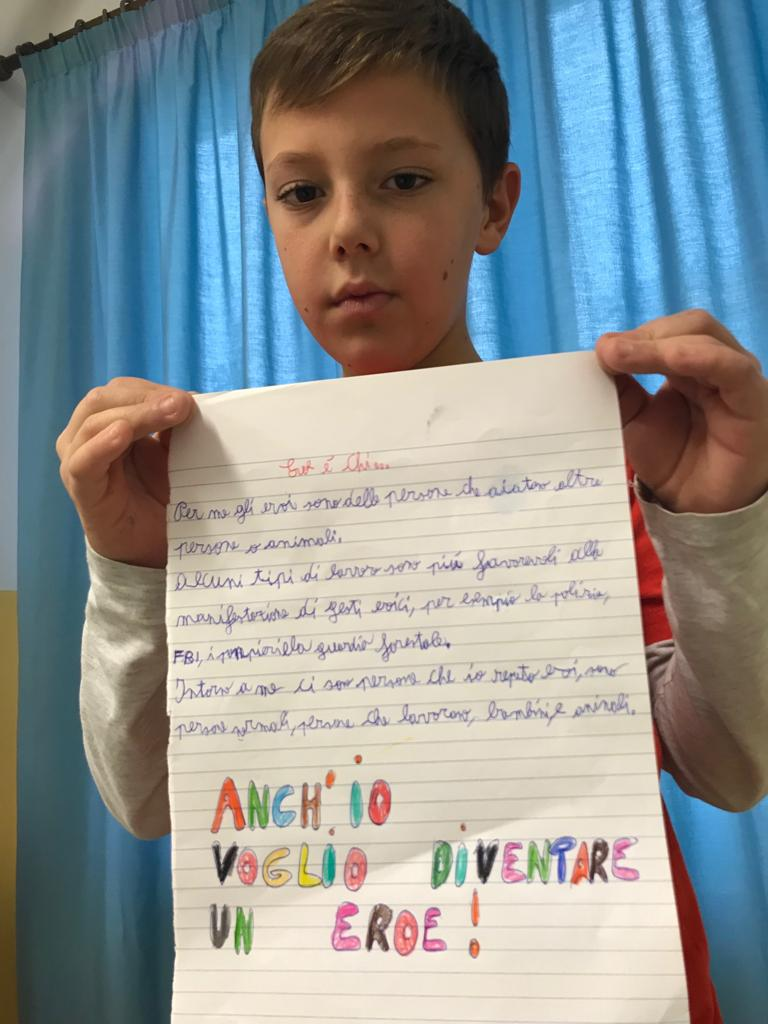 é Chi...
Per me gli eroi sono delle persone che aiutano altre
persone o animali.
Alcuni tipi di lavoro sono più favorevoli alla
manifestazione di gesti eroici, per esempio la polizia,
FBI, i pompieri e la guardia forestale.
Intorno a me ci sono persone che io reputo eroi, sono
persone normali, persone che lavorano, bambini, e animali.
ANCH'IO
VOGLIO DIVENTARE
UN EROE!